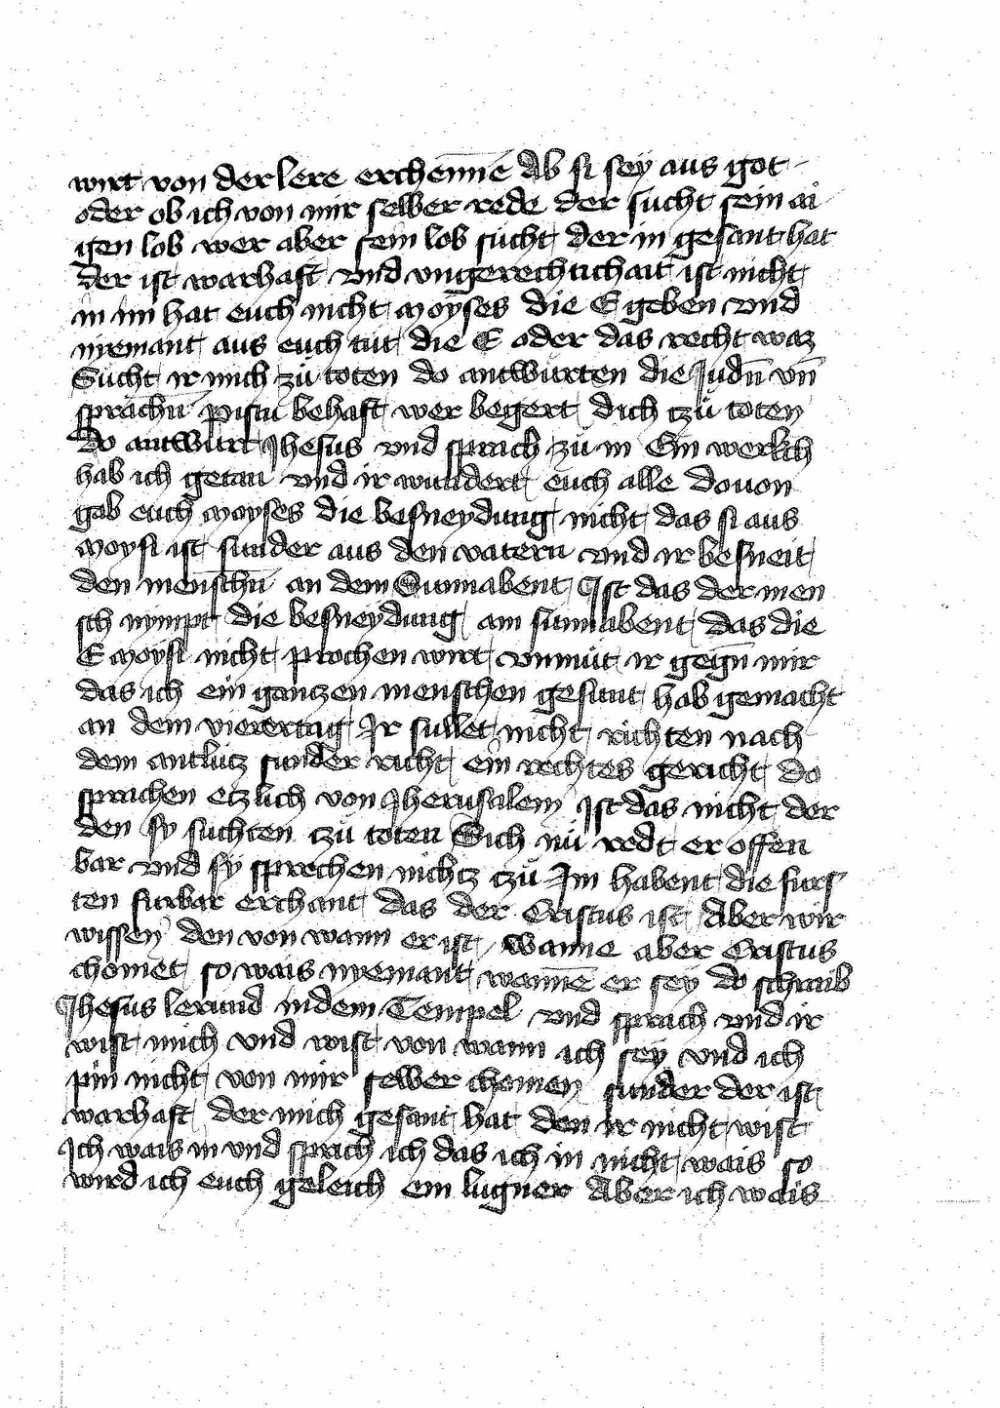 wirt von der lere erchenne̅ Ab si sey aus got
oder ob ich von mir selber rede der sucht sein ai
igen lob wer aber sein lob sucht der in gesant hat
der ist warhaft vnd vngerechtichait ist nicht
in im hat euch nicht moyses die E geben vnd
niemant aus euch tut die E oder das recht waz
Sucht ir mich zu toten do antwurten die Jude̅n vn̅
sprachn̅ Pistu behaft wer begert dich tzu toten
do antwurt Jhesus vnd sprach zu in Ein werkch
hab ich getan vnd ir wundert euch alle douon
gab euch moyses die besneydung nicht das si aus
moysi ist sunder aus den vatern vnd ir besneit
den menschn̅ an dem Sunnabent Ist das der men
sch nympt die besneydung am sunnabent das die
E moysi nicht prochen wirt vnmut ir gegn̅ mir
das ich ein gantzen menschen gesunt hab gemacht
an dem vierertag Ir sullet nicht richten nach
dem antlutz sunder richt ein rechtes gericht do
sprachen etzlich von Jherusalem Ist das nicht der
den sy suchten tzu toten Sich nu redt er offen
bar vnd sy sprechen nichtz tzu Im habent die furs
ten furbar erchant das der Cristus ist Aber wir
wissen den von wann er ist wanne aber Cristus
chomet so wais nyemant wanne̅ er sey do schraib
Jhesus lerund in dem Tempel vnd sprach vnd ir
wist mich vnd wist von wann ich sey vnd ich
pin nicht von mir selwer chomen sunder der ist
warhaft der mich gesant hat den ir nicht wist
Ich wais in vnd sprach ich das ich in nicht wais so
wird ich euch geleich ein lugner Aber ich wais